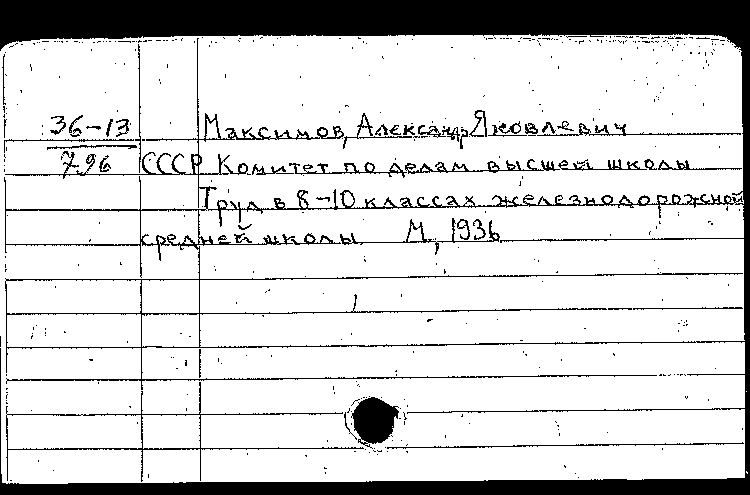 36-13 Максимов, Александр Яковлевич
796 СССР Комитет по делам высшей школы
Труд в 8-10 классах железнодорожной
средней школы М, 1936